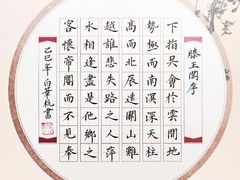 滕王閣序
下指吳會於雲間地
勢極而南溟深天柱
高而北辰遠關山難
越誰悲失路之人萍
水相逢盡是他鄉之
客懷帝閽而不見奉
乙巳年 白葉杭書